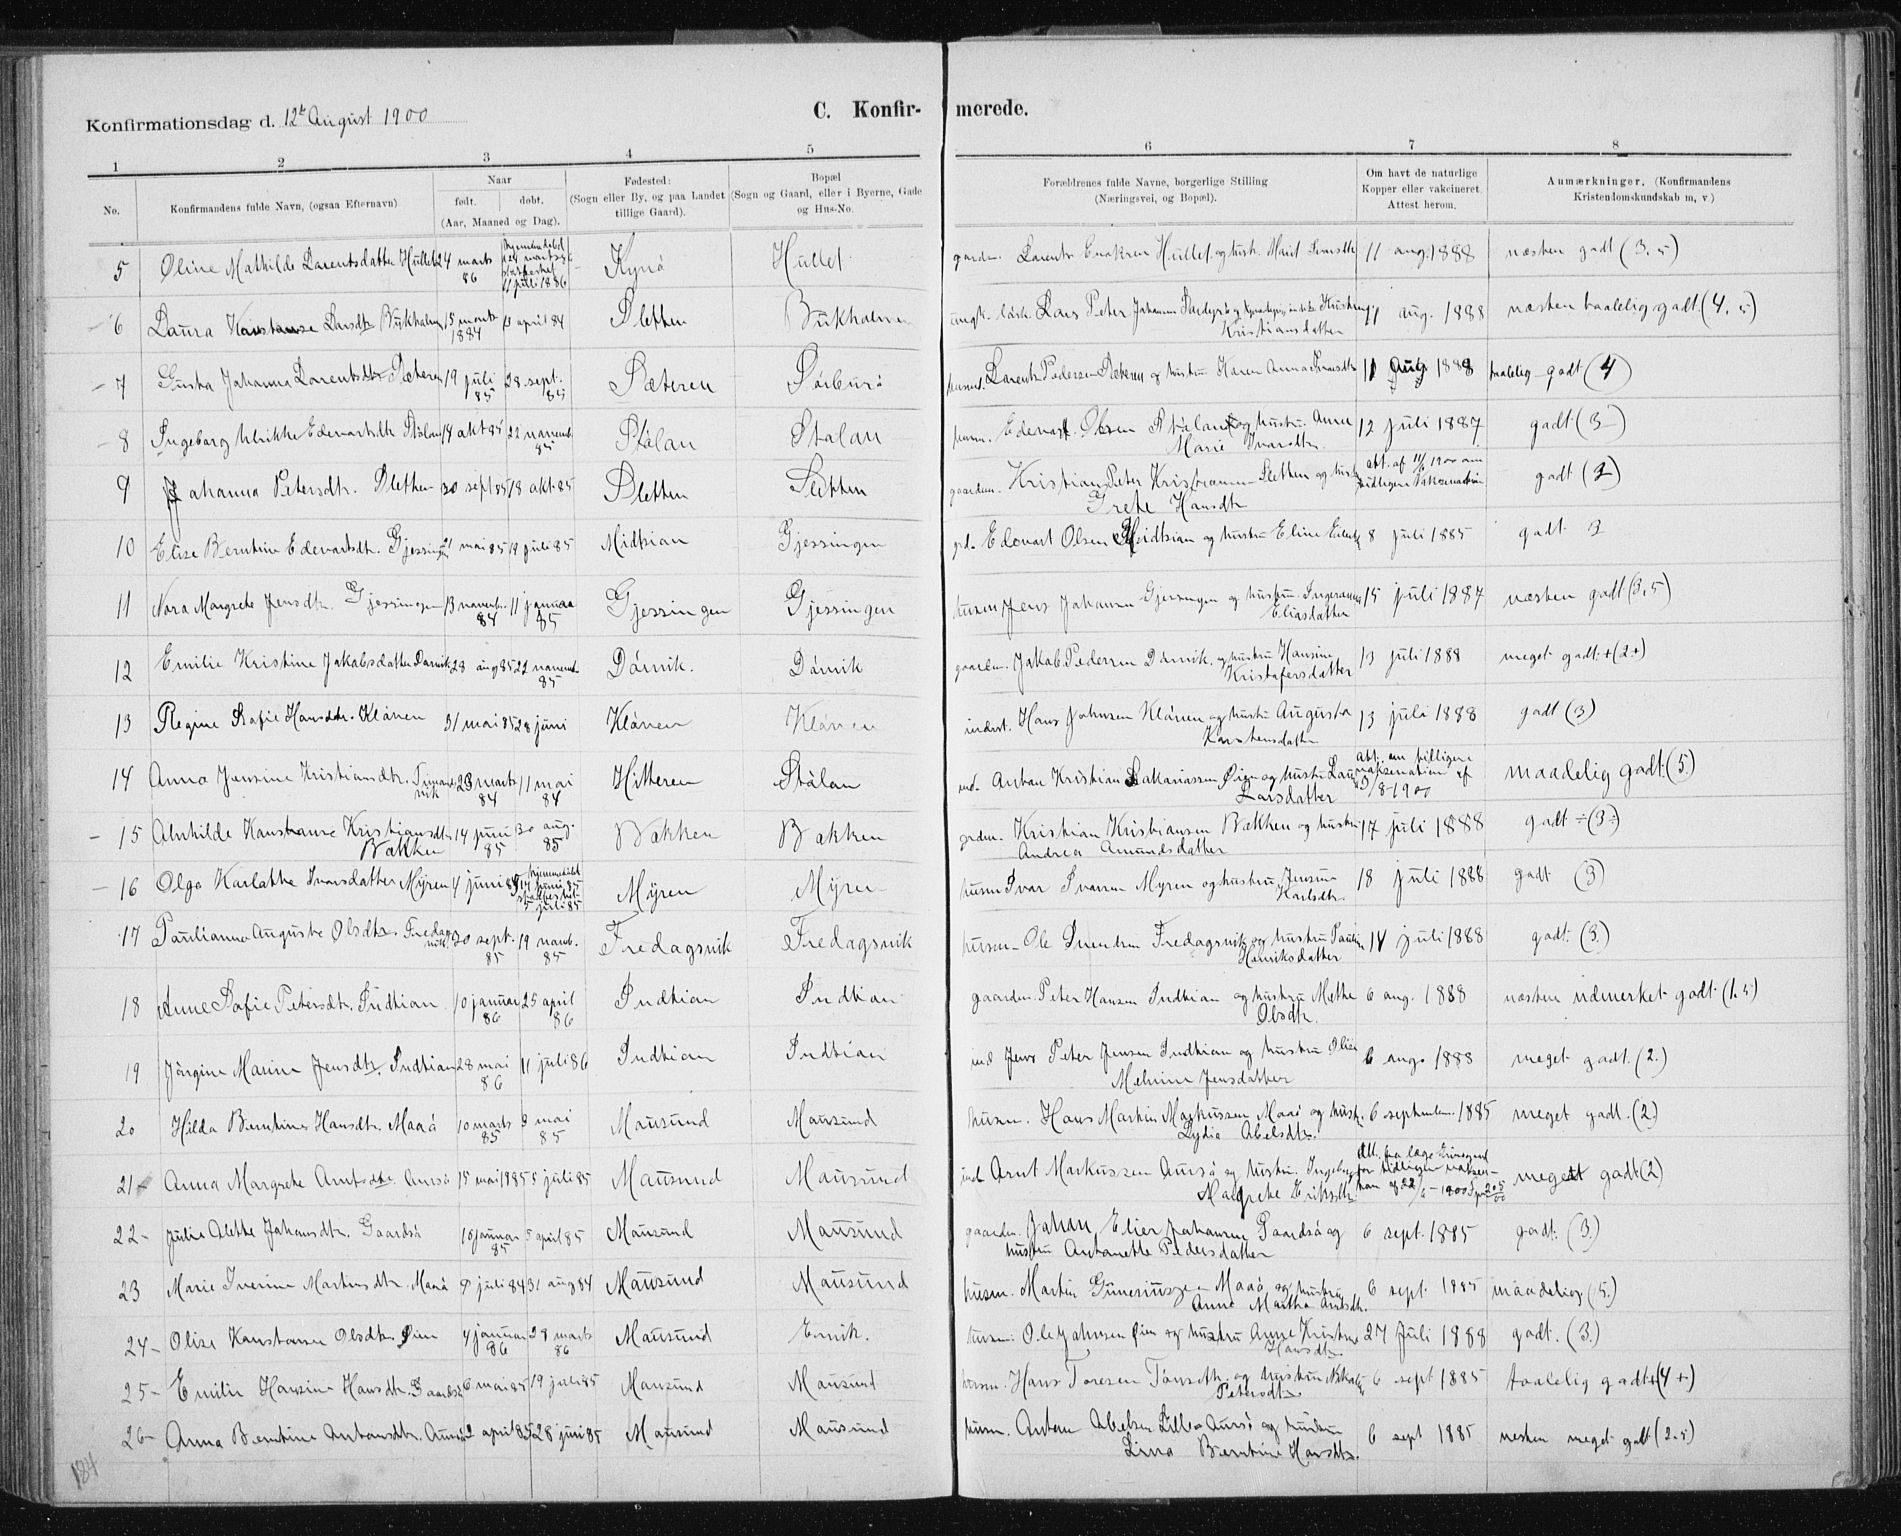 Konfirmationsdag d. 12te August 1900
C. Konfir- merede.
1 2 3 4 5 6 7 8
No.
Konfirmandens fulde Navn, (ogsaa Efternavn)
Naar
født. døbt.
(Aar, Maaned og Dag).
Fødested:
(Sogn eller By, og paa Landet
tillige Gaard).
Bopæl
(Sogn og Gaard, eller i Byerne, Gade
og Hus-No.
Forældrenes fulde Navne, borgerlige Stilling
(Næringsvei, og Bopæl).
Om havt de naturlige
Kopper eller vakcineret.
Attest herom.
Anmærkninger, (Konfirmandens
Kristendomskundskab m, v)
5 Oline Mathilde Larentsdatter Hullet 24 marts 86 11 juli 1886 Kyrø Hullet Larents Hullet og hustr. Marit 11 aug. 1888 næsten godt (3,5)
6 Laura Konstanse Larsdtr 15 marts 1884 13 april 84 Sletten Lars Peter Johansen Kristiansdatter 11 aug. 1888 næsten taalelig godt (4,5)
7 Gusta Johanna Larentsdtr Sæteren 19 juli 85 28 sept. 85 Sæteren Sørburø Larents Pedersen Sæteren og hustru Karen Anna 11 aug 1888 taalelig godt (4)
8 Ingeborg Ulrikke Edevartsdtr Stølan 14 okt 85 22 novemb. 85 Stølan Stølan husm. Edevart Olsen Stølan og hustru Anne
Marie Ivarsdtr. 12 juli 1887 godt (3)
9 Johanna Petersdtr. Sletten 20 sept 85 18 okt. 85 Sletten Sletten gaardm. Kristian Peter Kristiansen Sletten og hustru
Grete Hansdtr godt (3)
10 Elise Berntine Edevartsdtr. Gjessingen 21 mai 85 19 juli 85 Midtsian Gjessingen Edevart Olsen Midtsian og hustru Eline 8 juli 1885 godt 3
11 Nora Margrete Jensdtr. Gjessingen 13 novemb. 84 11 januar 85 Gjessingen Gjessingen husm Jens Johansen Gjessingen og hustru Ingeranna
Eliasdatter 15 juli 1887 næsten godt (3,5)
12 Emilie Kristine Jakobsdatter Dørvik 28 aug 85 22 novemb. 85 Dørvik. Dørvik gaardm. Jakob Pedersen Dørvik og hustru Hansine
Kristofersdatter 13 juli 1888 meget godt + (2+)
13 Regine Sofie Hansdtr. Kløven 31 mai 85 28 juni Kløven Kløven inderst. Hans Johnsen Kløven og hustru Augusta
Karstensdatter 13 juli 1888 godt (3)
14 Anna Jensine Kristiansdtr. 23 marts 84 11 mai 84 Hitteren Stølan ind. Anton Kristian Sakariassen Øien og hustru
Larsdatter 9/8-1900 maadelig godt. (5)
15 Alvhilde Konstanse Kristiansdtr
Bækken 14 juni 85 30 aug. 85 Bækken Bækken gardm. Kristian Kristiansen Bækken og hustru
Andrea Amundsdatter 17 juli 1888 godt ÷ (3÷)
16 Olga Karlotte Ivarsdatter Myren 4 juni 85 5 juli 85 Myren Myren husm Ivar Ivarsen Myren og hustru Jensine
Karlsdtr. 18 juli 1888 godt (3)
17 Paulianna Auguste Olsdtr. Fredagsvik 20 sept. 85 19 novb. 85 Fredagsvik Fredagsvik husm. Ole Svendsen Fredagsvik og hustru Pauline
Henriksdatter 14 juli 1888 godt (3.)
18 Anne Sofie Petersdtr. Indtian 10 januar 86 25 april 86 Indtian Indtian gaardm. Peter Hansen Indtian og hustru Methe
Olsdtr. 6 aug. 1888 næsten udmerket godt (1,5)
19 Jørgine Marine Jensdtr. Indtian 28 mai 86 11 juli 86 Indtian Indtian ind Jens Peter Jensen Indtian og hustru Olise
Melvine Jensdatter 6 aug. 1888 meget godt. (2.)
20 Hilda Berntine Hansdtr. Maaø 10 marts 85 9 mai 85 Mausund Mausund husm. Hans Martin Markussen Maaø og hust.
Lydia Abelsdtr. 6 september 1885 meget godt. (2.)
21 Anna Margrete Arntsdtr. Aursø 15 mai 1885 5 juli 85 Mausund Mausund ind Arnt Markussen Aursø og hustru. Ingeborg
Margrete Eriksdtr meget godt (2)
22 Julie Alette Johansdtr. Gaardsø 16 januar 85 5 april 85 Mausund Mausund gaardm. Johan Elier Johansen Gaardsø og
hustru Antonette Pedersdatter 6 sept. 1885 godt. (3.)
23 Marie Iverine Martinsdtr. Maaø 9 juli 84 31 aug 84 Mausund Mausund husm. Martin Gunerius Maaø og hustru
Anne Martha Arntsdtr. 6 sept. 1885 maadelig (5.)
24 Olise Konstanse Olsdtr. Øien 4 januar 86 28 marts 86 Mausund Ervik. husm. Ole Johnsen Øien og hustru Anne Kristine
Hansdtr. 27 Juli 1888 godt. (3.)
25 Emilie Hansine Hansdtr. 6 mai 85 19 juli 85 Mausund Mausund husm. Hans Toresen og hustru
Petersdtr. 6 sept 1885 taalelig godt + (4+)
26 Anna Berntine Antonsdtr. Aursø 2 april 85 28 juni 85 Mausund Mausund husm. Anton Abelsen Lille Aursø og hustru
Lina Berntine Hansdtr. 6 sept 1885 næsten meget godt (2.5)
184